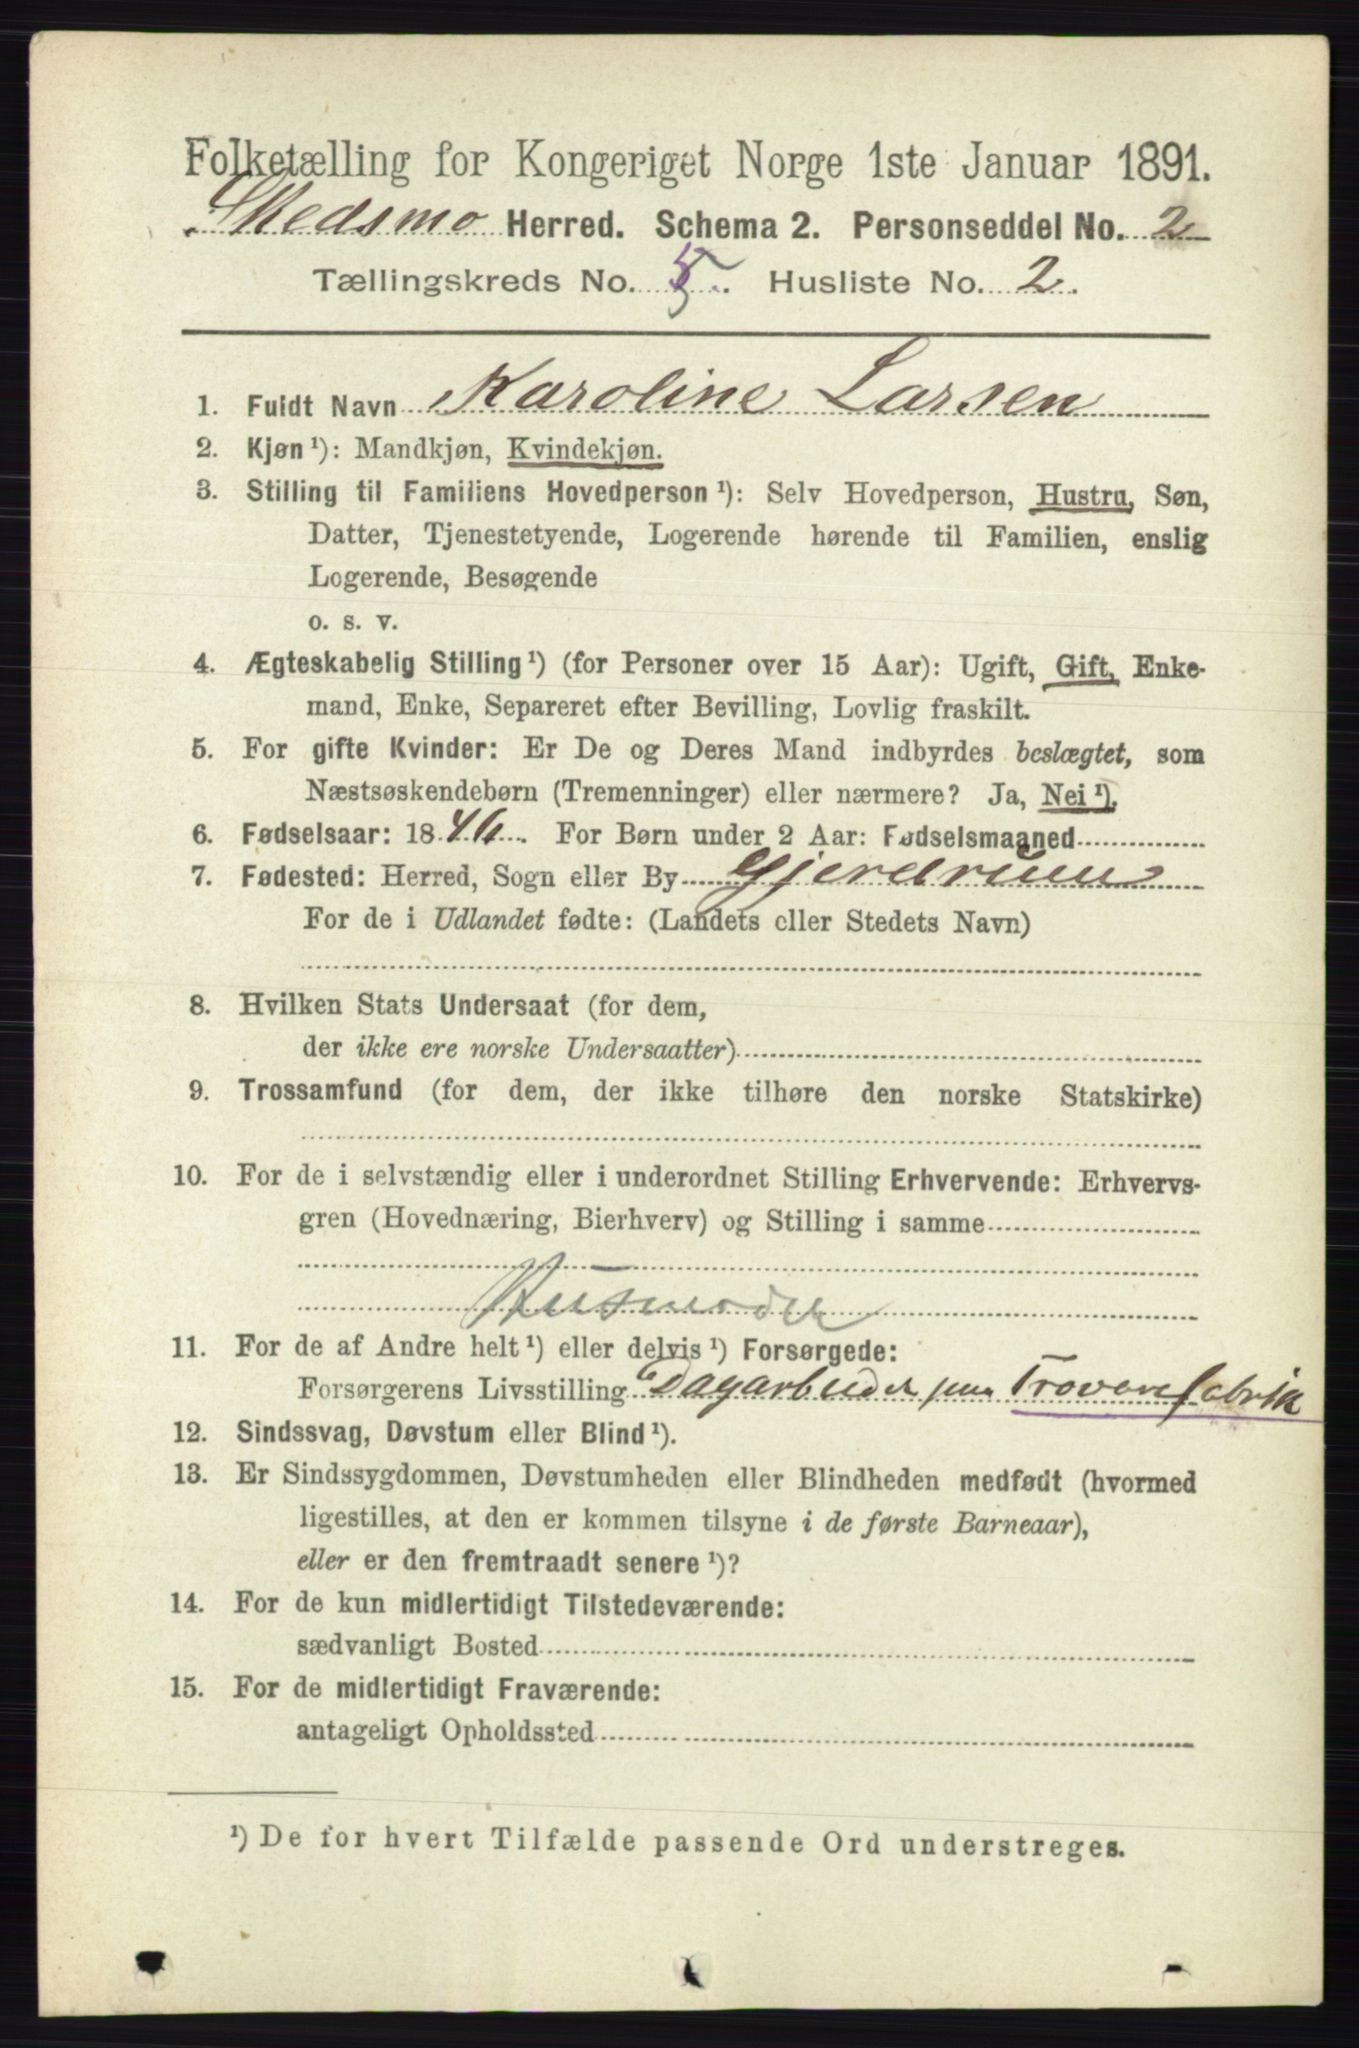 Folketælling for Kongeriget Norge 1ste Januar 1891.
Skedsmo Herred. Schema 2. Personseddel No. 2
Tællingskreds No. 5. Husliste No. 2.
1. Fuldt Navn Karoline Larsen
2. Kjøn ¹): Mandkjøn, Kvindekjøn.
3. Stilling til Familiens Hovedperson ¹): Selv Hovedperson, Hustru, Søn,
Datter, Tjenestetyende, Logerende hørende til Familien, enslig
Logerende, Besøgende
o. s. v.
4. Ægteskabelig Stilling ¹) (for Personer over 15 Aar): Ugift, Gift, Enke-
mand, Enke, Separeret efter Bevilling, Lovlig fraskilt.
5. For gifte Kvinder: Er De og Deres Mand indbyrdes beslægtet, som
Næstsøskendebørn (Tremenninger) eller nærmere? Ja, Nei ¹).
6. Fødselsaar: 1846. For Børn under 2 Aar: Fødselsmaaned
7. Fødested: Herred, Sogn eller By Gjerdrum
For de i Udlandet fødte: (Landets eller Stedets Navn)
8. Hvilken Stats Undersaat (for dem,
der ikke ere norske Undersaatter)
9. Trossamfund (for dem, der ikke tilhøre den norske Statskirke)
10. For de i selvstændig eller i underordnet Stilling Erhvervende: Erhvervs-
gren (Hovednæring, Bierhverv) og Stilling i samme
Husmoder
11. For de af Andre helt ¹) eller delvis ¹) Forsørgede:
Forsørgerens Livsstilling Dagarbeider paa Trovarefabrik
12. Sindssvag, Døvstum eller Blind ¹).
13. Er Sindssygdommen, Døvstumheden eller Blindheden medfødt (hvormed
ligestilles, at den er kommen tilsyne i de første Barneaar),
eller er den fremtraadt senere ¹)?
14. For de kun midlertidigt Tilstedeværende:
sædvanligt Bosted
15. For de midlertidigt Fraværende:
antageligt Opholdssted
¹) De for hvert Tilfælde passende Ord understreges.